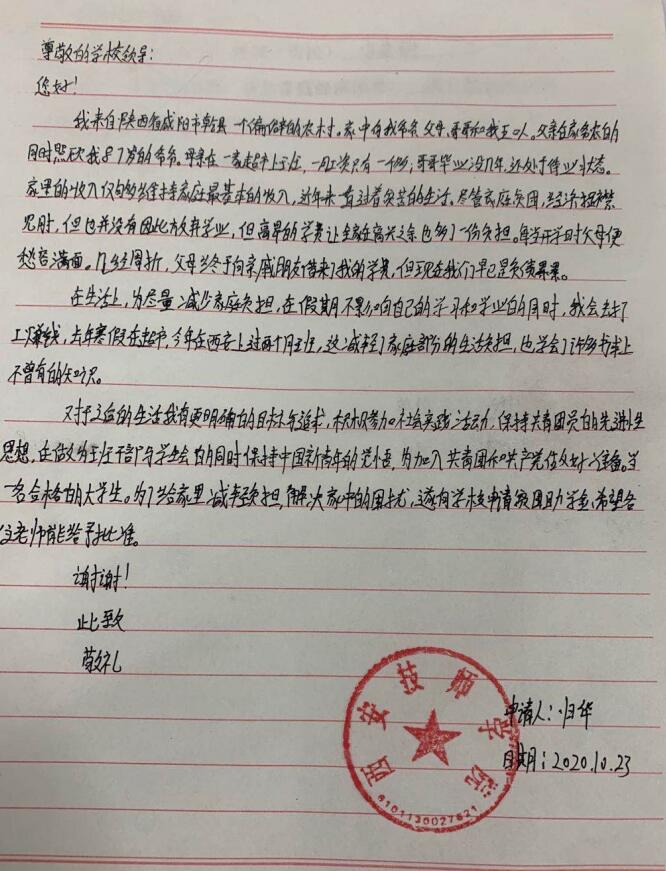 尊敬的学校领导:
您好!
我来自陕西省咸阳市乾县一个偏僻的农村。家中有我爷爷、父母、哥哥和我五口人。父亲在家务农的
同时照顾我87岁的爷爷。母亲在一家超市上班,一月工资只有一个多,哥哥毕业没几年,还处于待业状态。
家里的收入仅够维持家庭最基本的收入,近年来一直过着贫苦的生活。尽管家庭贫困,经济拮据禁
见肘,但也并没有因此放弃学业,但高昂的学费让全家在高兴之余也多了一份负担。每当开学时父母便
愁容满面。几经周折,父母终于向亲戚朋友借来了我的学费,但现在我们早已是负债累累。
在生活上,为尽量减少家庭负担,在假期不影响自己的学习和学业的同时,我会去打
工赚钱,去年寒假在超市,今年在西安上过两个月班,这减轻了家庭部分的生活负担,也学会了许多书本上
不曾有的知识。
对于之后的生活我有更明确的目标与追求,积极参加社会实践活动,保持共青团员的先进性
思想,在做为班干部与学生会的同时保持中国新青年的觉悟,为加入共青团和共产党做好准备。当
一名合格的大学生。为了给家里减轻负担,解决家中的困扰,遂向学校申请贫困助学金,希望各
位老师能给予批准。
谢谢!
此致
敬礼
申请人:归华
日期:2020.10.23
西安技师学院
6101130027621